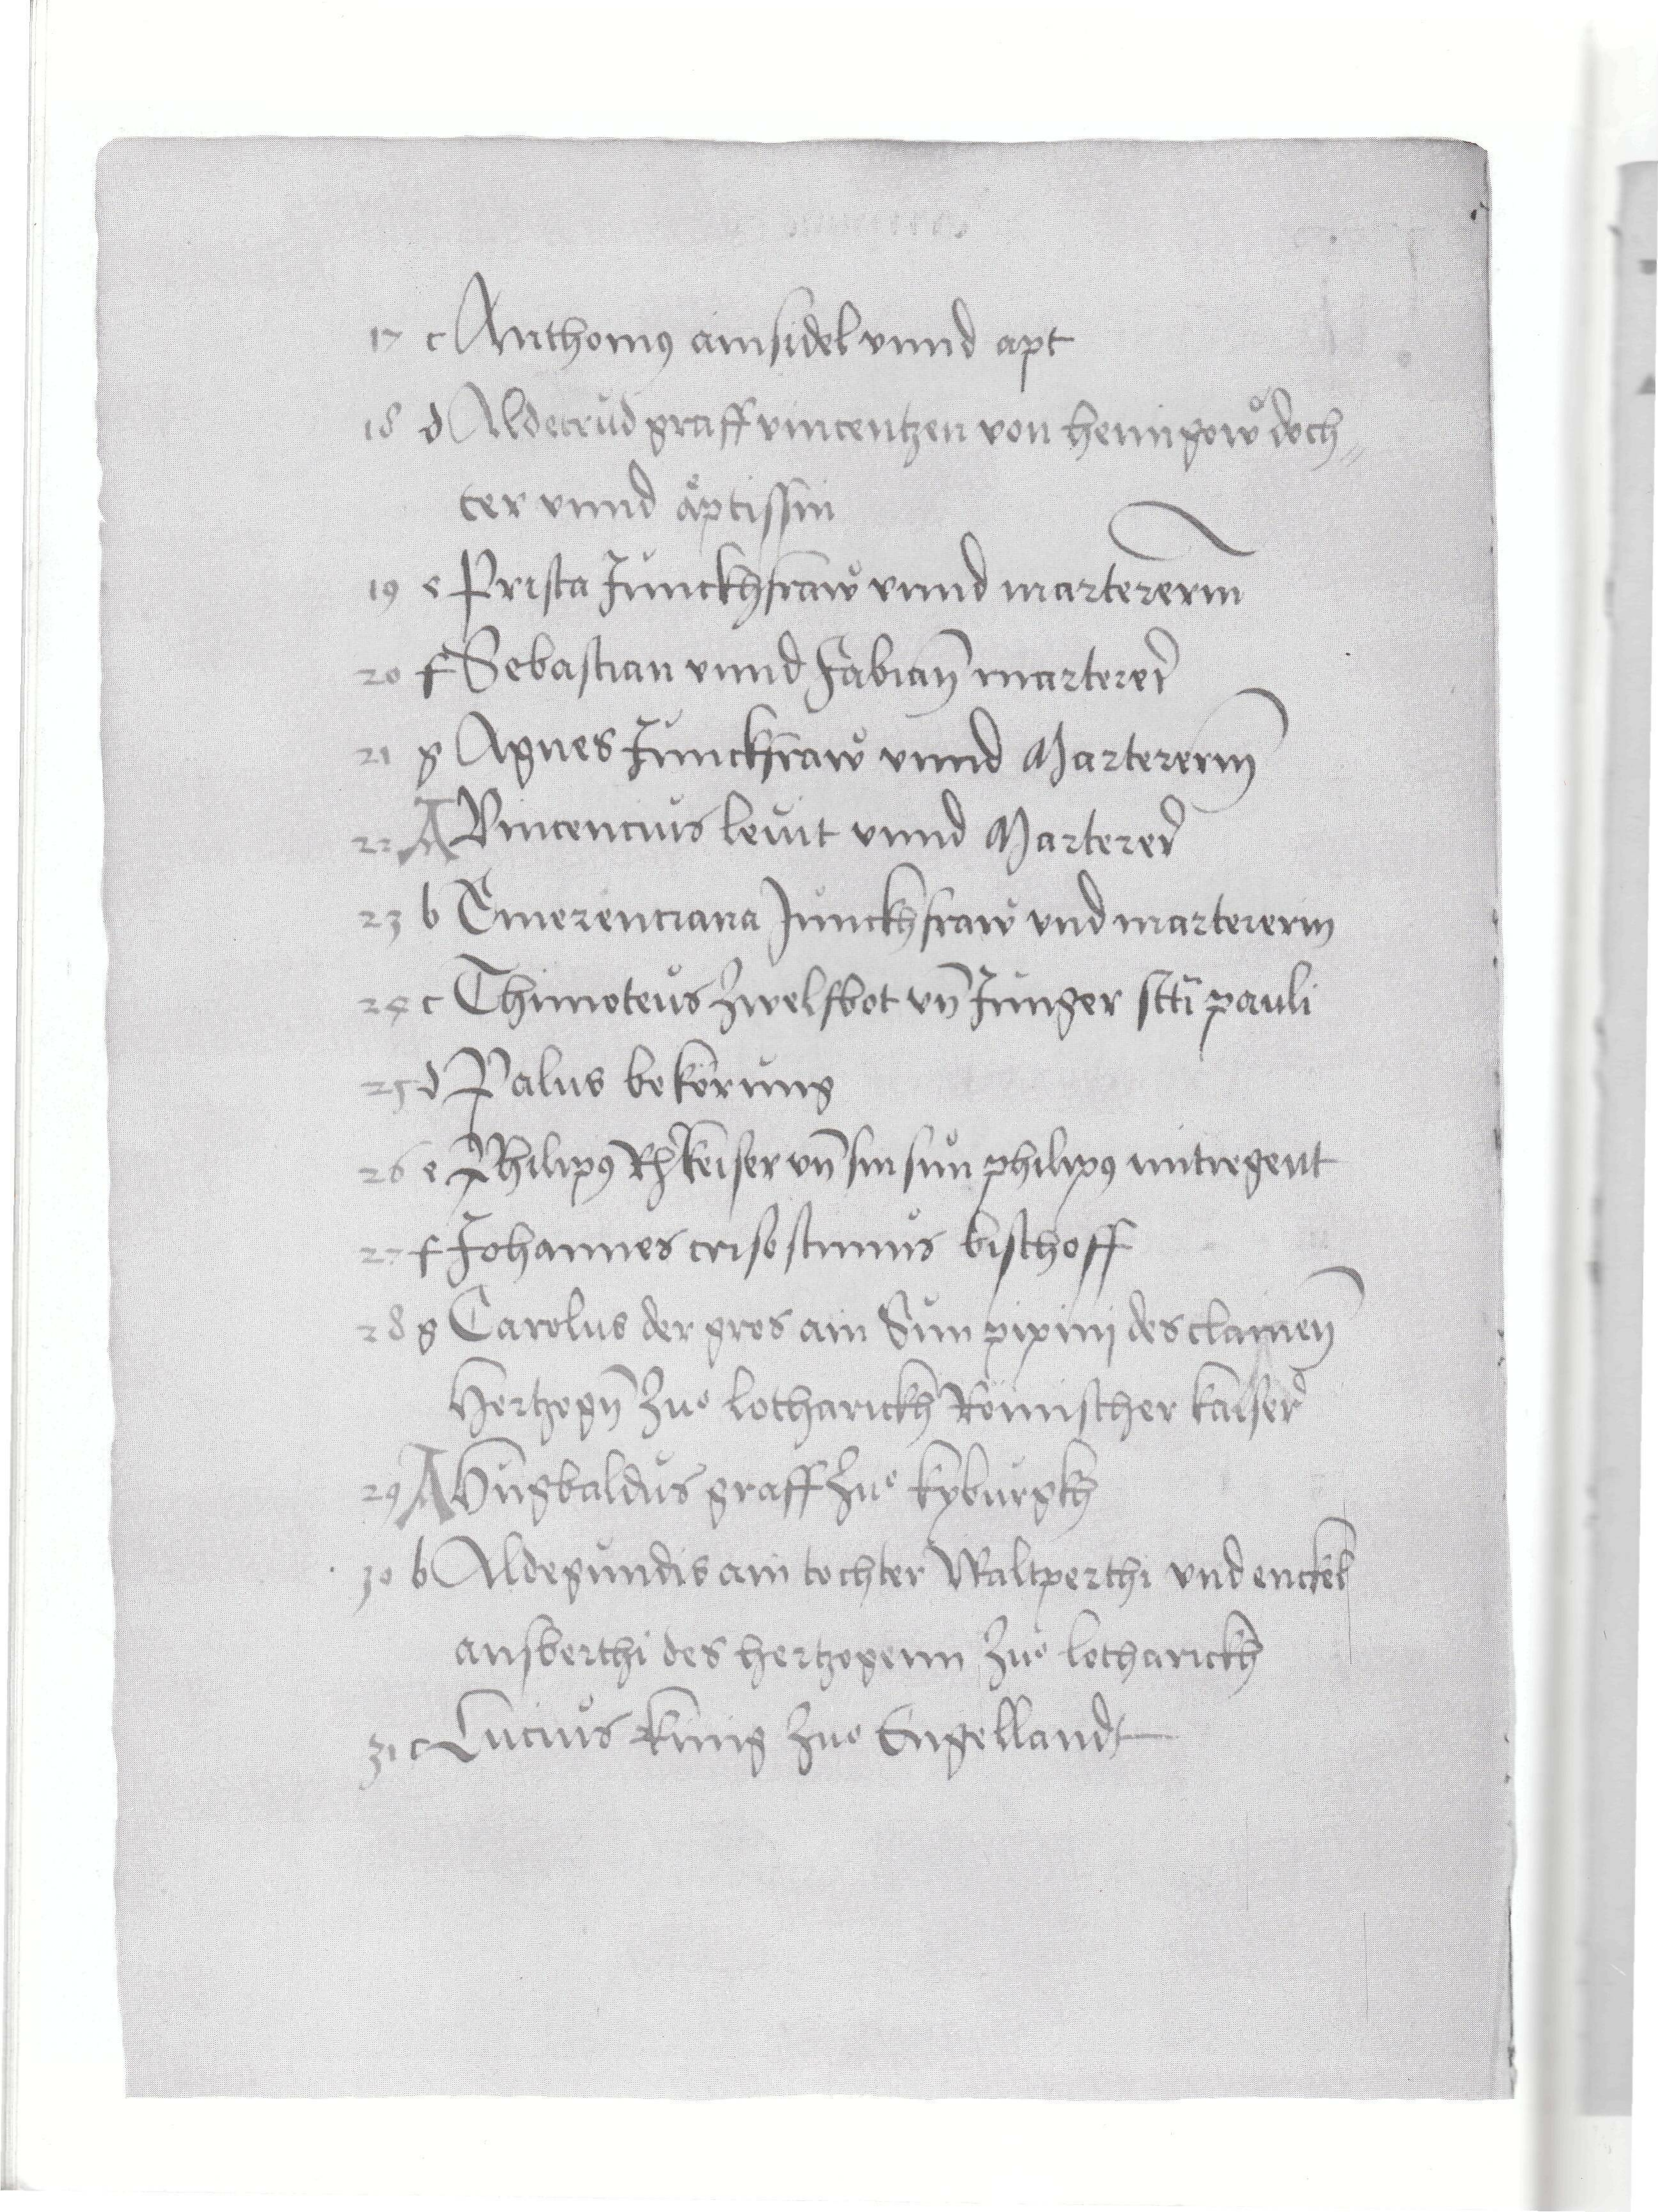 17 c Anthonius ainsidel vnnd apt
18 d Aldetrud graff vincentzen von henigow doch„
ter vnnd äptissin
19 e Prisca Junckhfraw vnnd martererin
20 f Sebastian vnnd Fabian marterer
21 g Agnes Junckfraw vnnd Martererin
22 A Vincencius levit vnnd Marterer
23 b Emerenciana Junckhfraw vnd martererin
24 c Thimoteus Zwelfbot vn̄ Junger scti pauli
25 d Palus bekörung
26 e Philipus Rh keiser vn̄ sin sun philipus mitregent
27 f Johannes crisostimus bischoff
28 g Carolus der gros ain Sun pipinj des clainen
Hertzogn̄ Zuo lotharickh Römischer kaiser
29 A Hugbaldus graff Zuo kyburgkh
30 b Aldegundis ain tochter Waltperthi vnd enckel
ansberthi des hertzogenn Zuo lotharickh
31 c Lucius künig Zuo Engellandt